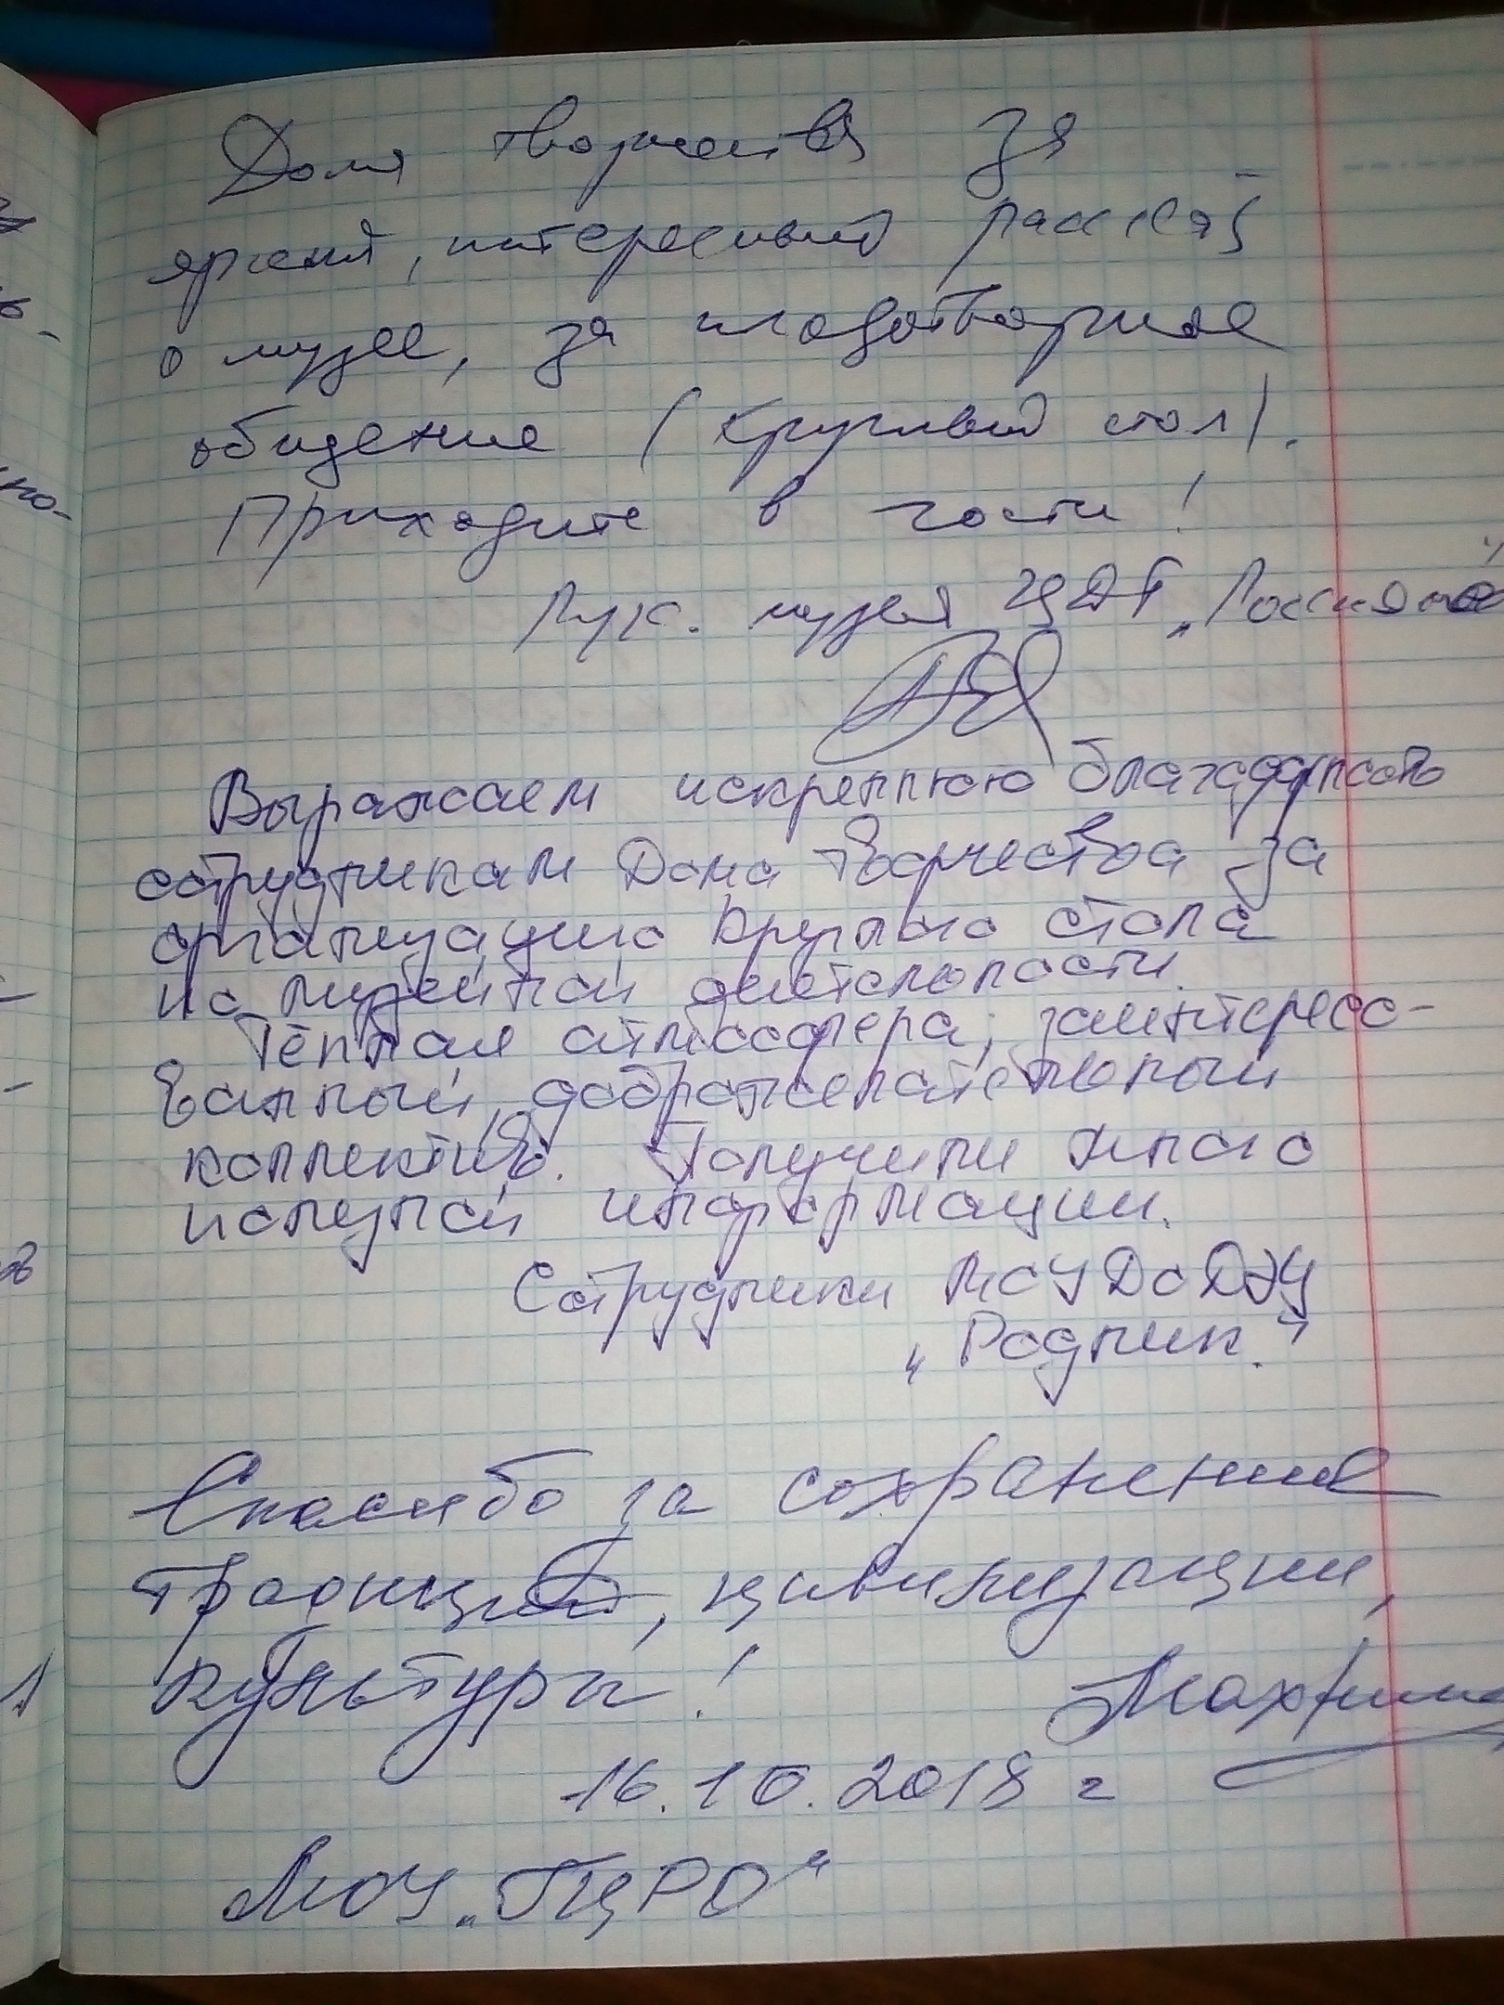 Дома творчества за
яркий, интересный рассказ
о музее, за плодотворное
общение (круглый стол).
Приходите в гости!
Рук. музея ЦДТ „Россияне"
Выражаем искреннюю благодарность
сотрудникам Дома творчества за
организацию круглого стола
по музейной деятельности.
Тёплая атмосфера, заинтересо-
ванный, доброжелательный
коллектив. Получили много
нужной информации.
Сотрудники МОУ ДО ДЭЦ
„Родник."
Спасибо за сохранение
традиций, цивилизации,
культуры!
16.10.2018 г
МОУ „ГЦРО"